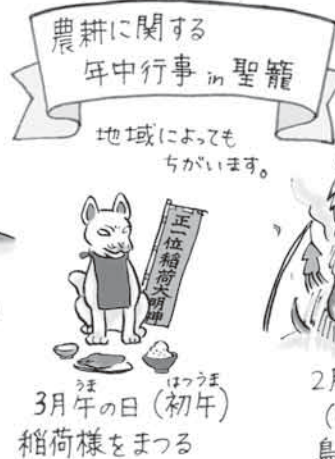 農耕に関する
年中行事 in 聖籠
地域によっても
ちがいます。
正一位稲荷大明神
3月午の日（初午）
うま
はつうま
稲荷様をまつる
2月
(
鳥